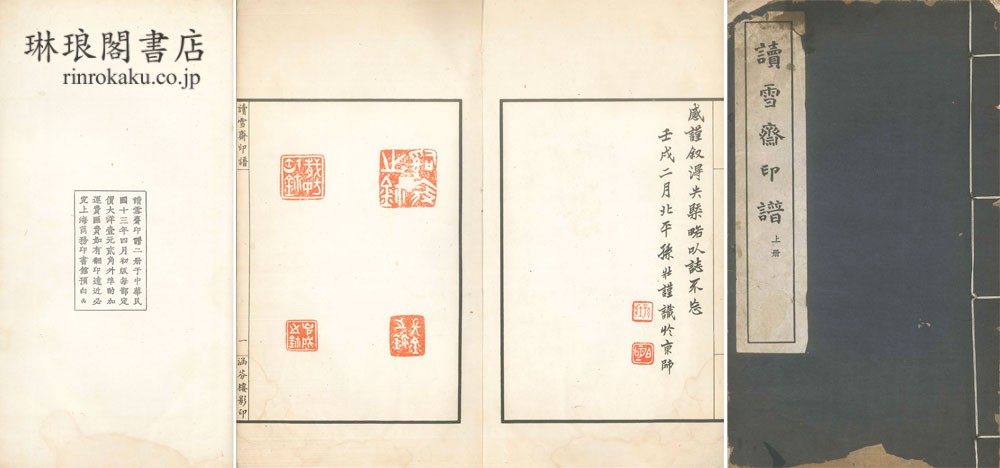 琳琅閣書店
rinrokaku.co.jp
讀雪齋印譜
上册
感謹叙淂失槩略以誌不忘
壬戌二月北平孫壯謹識於京師
讀雪齋印譜
一
涵芬樓影印
讀雪齋印譜二册于中華民
國十三年四月初版每部定
價大洋壹元貳角外埠酌加
運費匯費如有翻印遠近必
究上海商務印書館預白